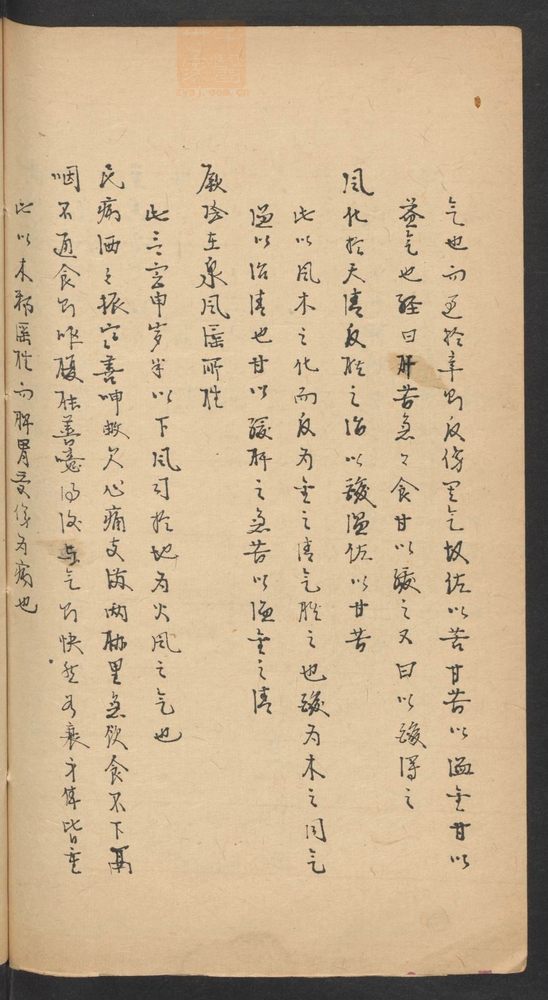 气也而过於辛则反伤里气故佐以苦甘苦以温金甘以
益气也经曰肝苦急々食甘以缓之又曰以酸泻之
风化於天清反胜之治以酸温佐以甘苦
此以风木之化而反为金之清气胜之也酸为木之同气
温以治清也甘以缓肝之急苦以温金之清
厥阴在泉风淫所胜
此言寅申岁半以下风司於地为火风之气也
民病洒々振寒善呻数欠心痛支满两胁里急饮食不下鬲
咽不通食则呕腹胀善噫得後与气则快然如衰身体皆重
此以木邪淫胜而脾胃受伤为病也